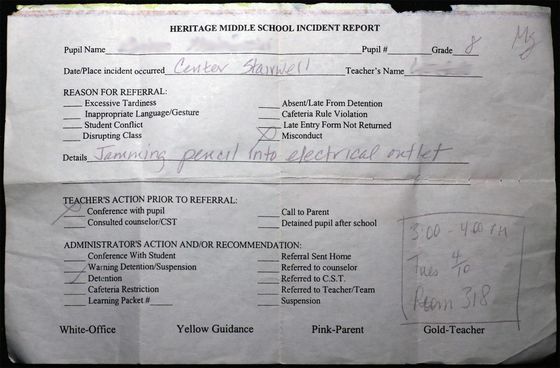 HERITAGE MIDDLE SCHOOL INCIDENT REPORT
Pupil Name Pupil # Grade 8
Date/Place incident occurred Center Stairwell Teacher's Name
REASON FOR REFERRAL:
Excessive Tardiness Absent/Late From Detention
Inappropriate Language/Gesture Cafeteria Rule Violation
Student Conflict Late Entry Form Not Returned
Disrupting Class Misconduct
Details Jamming pencil into electrical outlet
TEACHER'S ACTION PRIOR TO REFERRAL:
Conference with pupil Call to Parent
Consulted counselor/CST Detained pupil after school
ADMINISTRATOR'S ACTION AND/OR RECOMMENDATION:
Conference With Student Referral Sent Home
Warning Detention/Suspension Referred to counselor
Detention Referred to C.S.T.
Cafeteria Restriction Referred to Teacher/Team
Learning Packet # Suspension
3:00 - 4:00 PM
Tues 4/10
Room 318
White-Office Yellow Guidance Pink-Parent Gold-Teacher